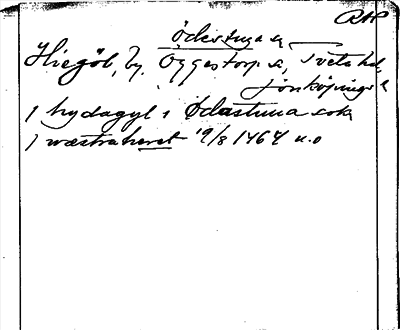 RAP
Ödestuga sn
Hiegöl, by. Öggestorp s., Tveta hd,
Jönköpings l
j hydagyl i Ødastuna sokn
j wæstraheret 19/8 1464 u.o